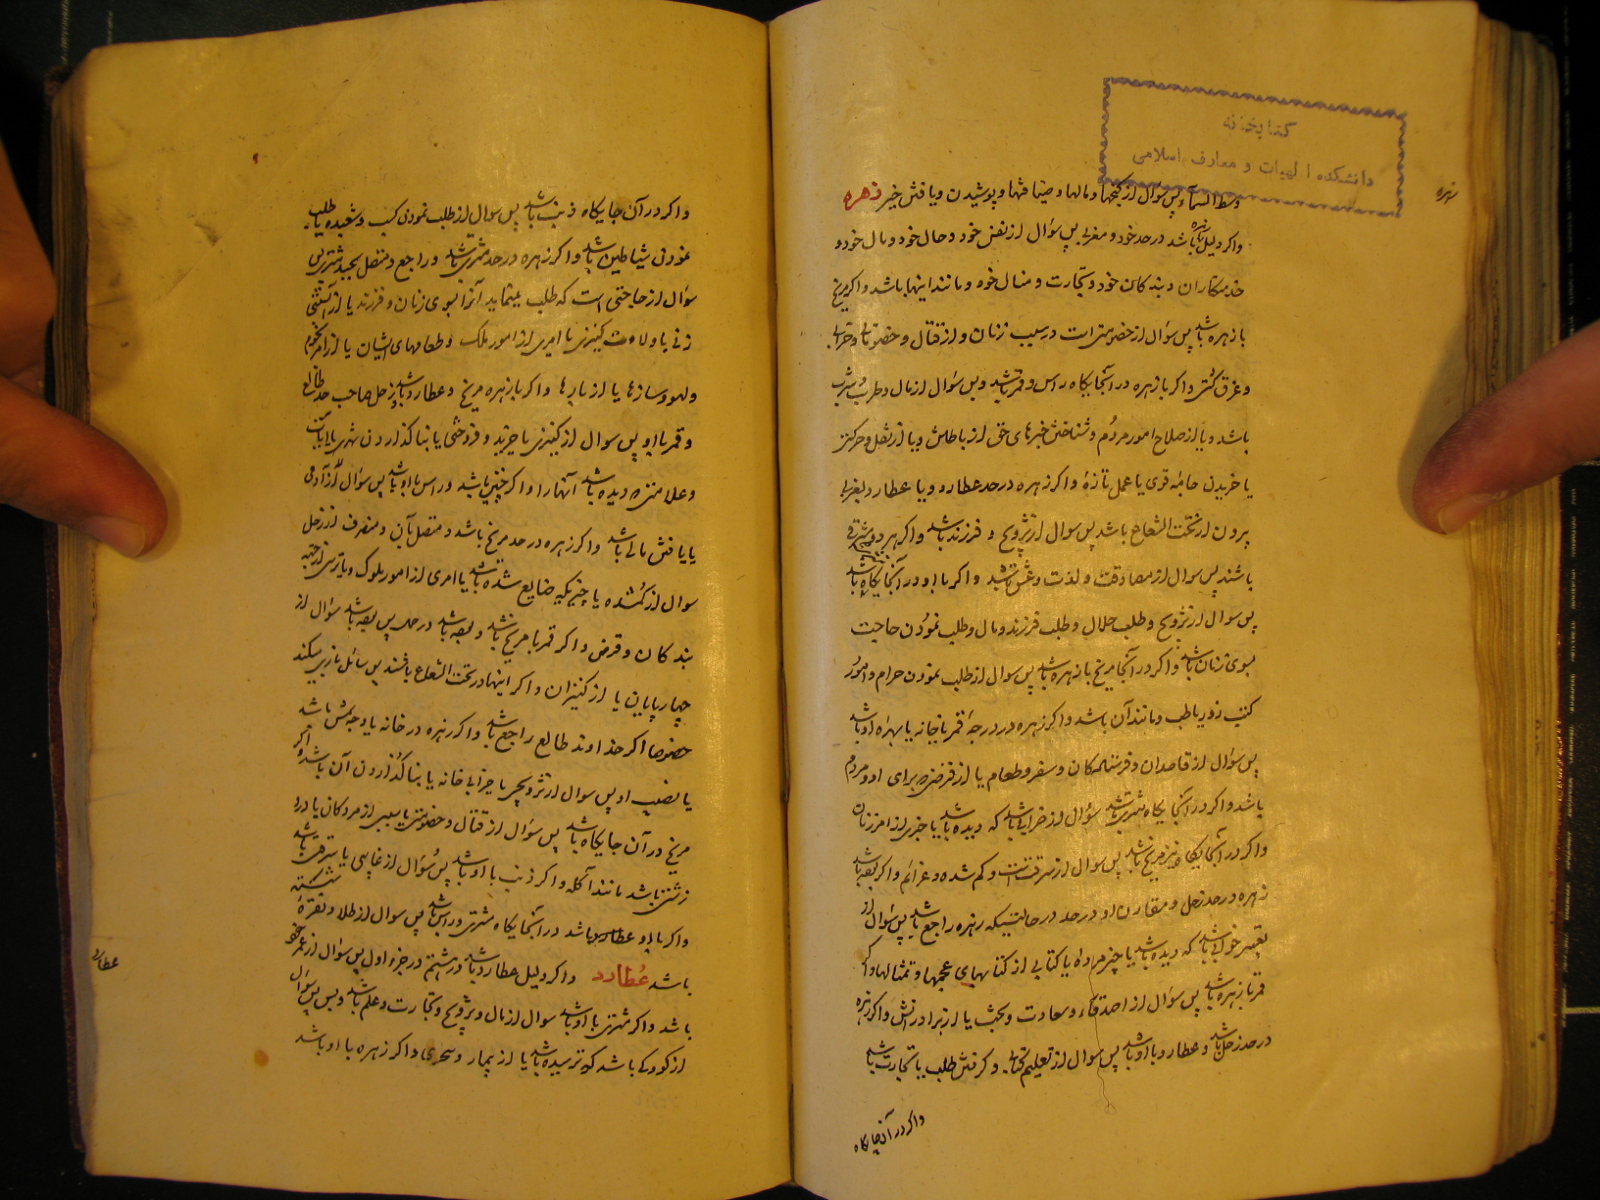 کتابخانه
دانشکده الهیات و معارف اسلامی
زهره
وسط السمآء پس سوال از کنجها و مالها و ضیافتها و پوشیدن و یافتن خیر زهره
واکر دلیل زهره باشد در حد خود و مغربی پس سؤال از نفس خود و حال خود و مال خود و
خدمتکاران و بندکان خود و تجارت و منال خود و مانند اینها باشد واکر مریخ
با زهره باشد پس سؤال از خصومتی است در سبب زنان و از قتال و خصومات و خرابی
و غرق کشتی واکر با زهره در آنجایکاه راس و قمر باشد پس سوال از مال و طرب و شرب
باشد و یا از صلاح امور مردم و شناختن خبرهای حق از باطلش و یا از نقل و حرکتی
یا خریدن جامهٔ قوی یا عمل تازهٔ واکر زهره در حد عطارد و با عطارد مغربی
بیرون از تحت الشعاع باشد پس سوال از تزویج و فرزند باشد واکر هر دو مشرقی
باشند پس سوال از مصادقت و لذت و غش باشد واکر با او در آنجایکاه باشد
پس سوال از تزویج و طلب حلال و طلب فرزند و مال و طلب نمودن حاجت
بسوی زنان باشد واکر در آنجا مریخ با زهره باشد پس سوال از طلب نمودن حرام و امور
کتب زور یا طب و مانند آن باشد واکر زهره در درجهٔ قمر یا خانه یا بهره او باشد
پس سؤال از قاصدان و فرستادکان و سفر و طعام یا از قرضی برای او و مردم
باشد واکر در آنجایکاه مشتری باشد سؤال از خوابی باشد که دیده باشد یا چیزی از امر زنان
واکر در آنجایکاه نیز مریخ باشد پس سوال از سرقت است و کم شده و غرائم واکر بوده باشد
زهره در حد زحل و مقارن او در حد در حالتیکه زهره راجع باشد پس سؤال از
تعبیر خوابی باشد که دیده باشد یا چیز مرده یا کتابی از کتابهای عجمها و تمثالها واکر
قمر با زهره باشد پس سؤال از اصدقاء و سعادت و بحث یا از برادرانش واکر زهره
در حد زحل باشد و عطارد با او باشد پس سوال از تعلیم کتاب و کرفتن طلب یا تجارت باشد
واکر در آنجایکاه
واکر در آن جایکاه ذنب باشد پس سوال از طلب نمودن کسب و شعبده یا طلب
نمودن شیاطین باشد واکر زهره در حد مشتری باشد و راجع و متصل بجسد مشتری پس
سؤال از حاجتی است که طلب مینماید آنرا بسوی زنان و فرزند یا از آبستنی
زنی یا ولادت کنیزی یا امری از امور ملک و طعامهای ایشان یا از امر نجوم
و لهو و سازها یا از بازیها واکر با زهره مریخ و عطارد باشد و زحل صاحب حد طالع
و قمر با او پس سوال از کنیزی یا خرید و فروشی یا بنا کذاردن شهری یا ابیات
و علامتی دیده باشد آنها را واکر چنین باشد و راس با او باشد پس سؤال از آدمی
یا یافتن مالی باشد واکر زهره در حد مریخ باشد و متصل بآن و منصرف از زحل
سوال از کمشده یا چیزیکه ضایع شده باشد یا امری از امور ملوک و یا ترسی از جهة
بندکان و قرض واکر قمر با مریخ باشد و بوده باشد در حد پس بوده باشد سؤال از
چهارپایان یا از کنیزان واکر اینها در تحت الشعاع باشند پس سائل بازی میکند
خصوصا اکر خداوند طالع راجع باشد واکر زهره در خانه یا وجهش باشد
یا نصیب او پس سوال از تزویجی یا خرابی خانه یا بنا کذاردن آن باشد واکر
مریخ در آن جایکاه باشد پس سؤال از قتال و خصومتی یا سببی از مردکان یا درد
زشتی باشد مانند آکله واکر ذنب با او باشد پس سؤال از غایبی یا سرقتی باشد
واکر با او عطارد باشد در آنجایکاه مشتری و راس باشد پس سوال از طلا و نقرهٔ شکسته
باشد عُطارد واکر دلیل عطارد باشد در هشتم در جزء اول پس سؤال از عمر خود
باشد واکر مشتری با او باشد سوال از مال و تزویج و تجارت و علم باشد و بس پس سؤال
از کودکی باشد که ترسیده باشد یا از بیمار و سحری واکر زهره با او باشد
عطارد